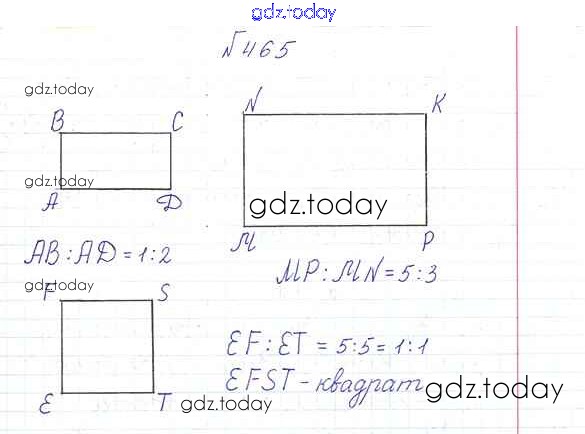 gdz.today
№465
gdz.today
B C
N K
gdz.today
A D
gdz.today
M P
AB : AD = 1 : 2
MP : MN = 5 : 3
gdz.today
F S
EF : ET = 5:5 = 1:1
EFST - квадрат
gdz.today
E T
gdz.today